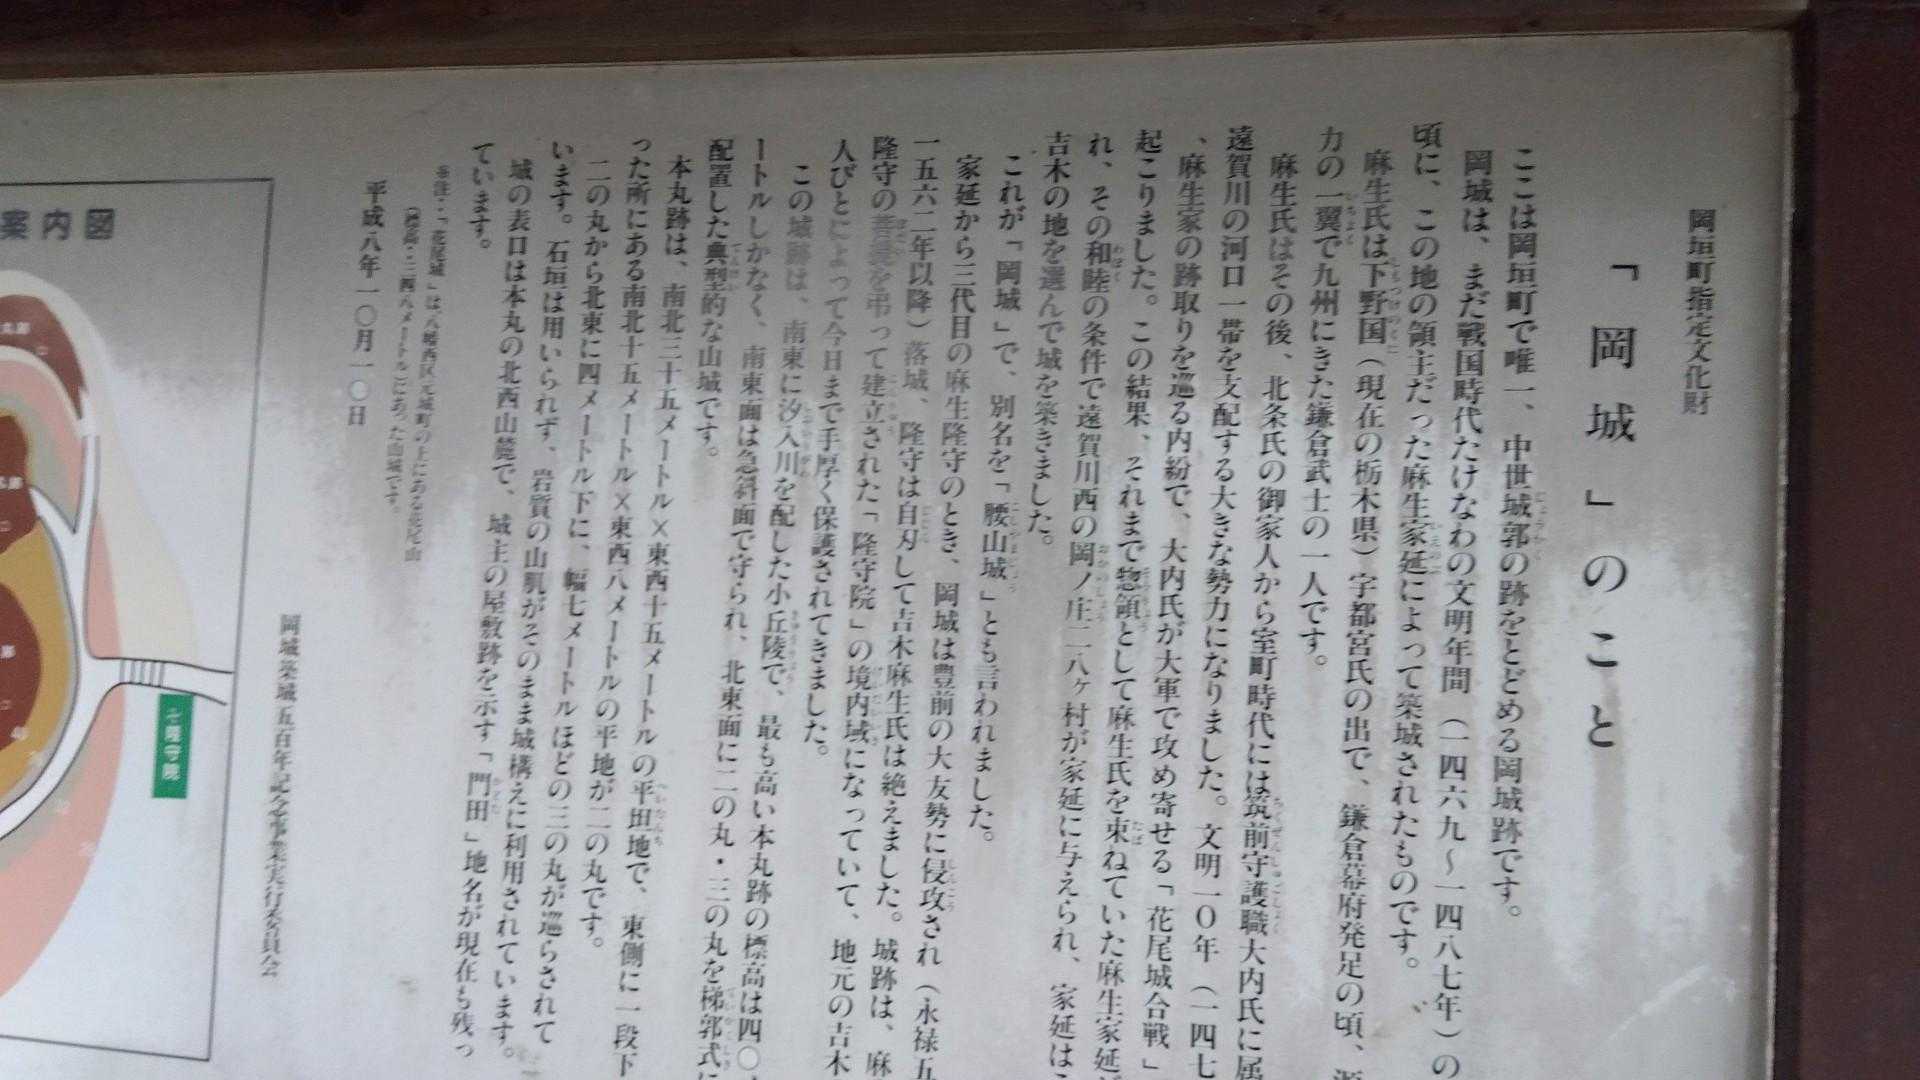 岡垣町指定文化財
「岡城」のこと
ここは岡垣町で唯一、中世城郭の跡をとどめる岡城跡です。
岡城は、まだ戦国時代たけなわの文明年間（一四六九〜一四八七年）の
頃に、この地の領主だった麻生家延によって築城されたものです。
麻生氏は下野国（現在の栃木県）宇都宮氏の出で、鎌倉幕府発足の頃、源
力の一翼で九州にきた鎌倉武士の一人です。
麻生氏はその後、北条氏の御家人から室町時代には筑前守護職大内氏に属
遠賀川の河口一帯を支配する大きな勢力になりました。文明一〇年（一四七
、麻生家の跡取りを巡る内紛で、大内氏が大軍で攻め寄せる「花尾城合戦」
起こりました。この結果、それまで惣領として麻生氏を束ねていた麻生家延
れ、その和睦の条件で遠賀川西の岡ノ庄二八ヶ村が家延に与えられ、家延は
吉木の地を選んで城を築きました。
これが「岡城」で、別名を「腰山城」とも言われました。
家延から三代目の麻生隆守のとき、岡城は豊前の大友勢に侵攻され（永禄五
一五六二年以降）落城、隆守は自刃して吉木麻生氏は絶えました。城跡は、麻
隆守の菩提を弔って建立された「隆守院」の境内域になっていて、地元の吉木
人びとによって今日まで手厚く保護されてきました。
この城跡は、南東に汐入川を配した小丘陵で、最も高い本丸跡の標高は四〇
ートルしかなく、南東面は急斜面で守られ、北東面に二の丸・三の丸を梯郭式に
配置した典型的な山城です。
本丸跡は、南北三十五メートル×東西十五メートルの平坦地で、東側に一段下
った所にある南北十五メートル×東西八メートルの平地が二の丸です。
二の丸から北東に四メートル下に、幅七メートルほどの三の丸が巡らされて
います。石垣は用いられず、岩質の山肌がそのまま城構えに利用されています。
城の表口は本丸の北西山麓で、城主の屋敷跡を示す「門田」地名が現在も残っ
ています。
※注：「花尾城」は八幡西区元城町の上にある花尾山
（標高・三四八メートル）にあった山城です。
平成八年一〇月一〇日
岡城築城五百年記念事業実行委員会
案内図
至隆守院